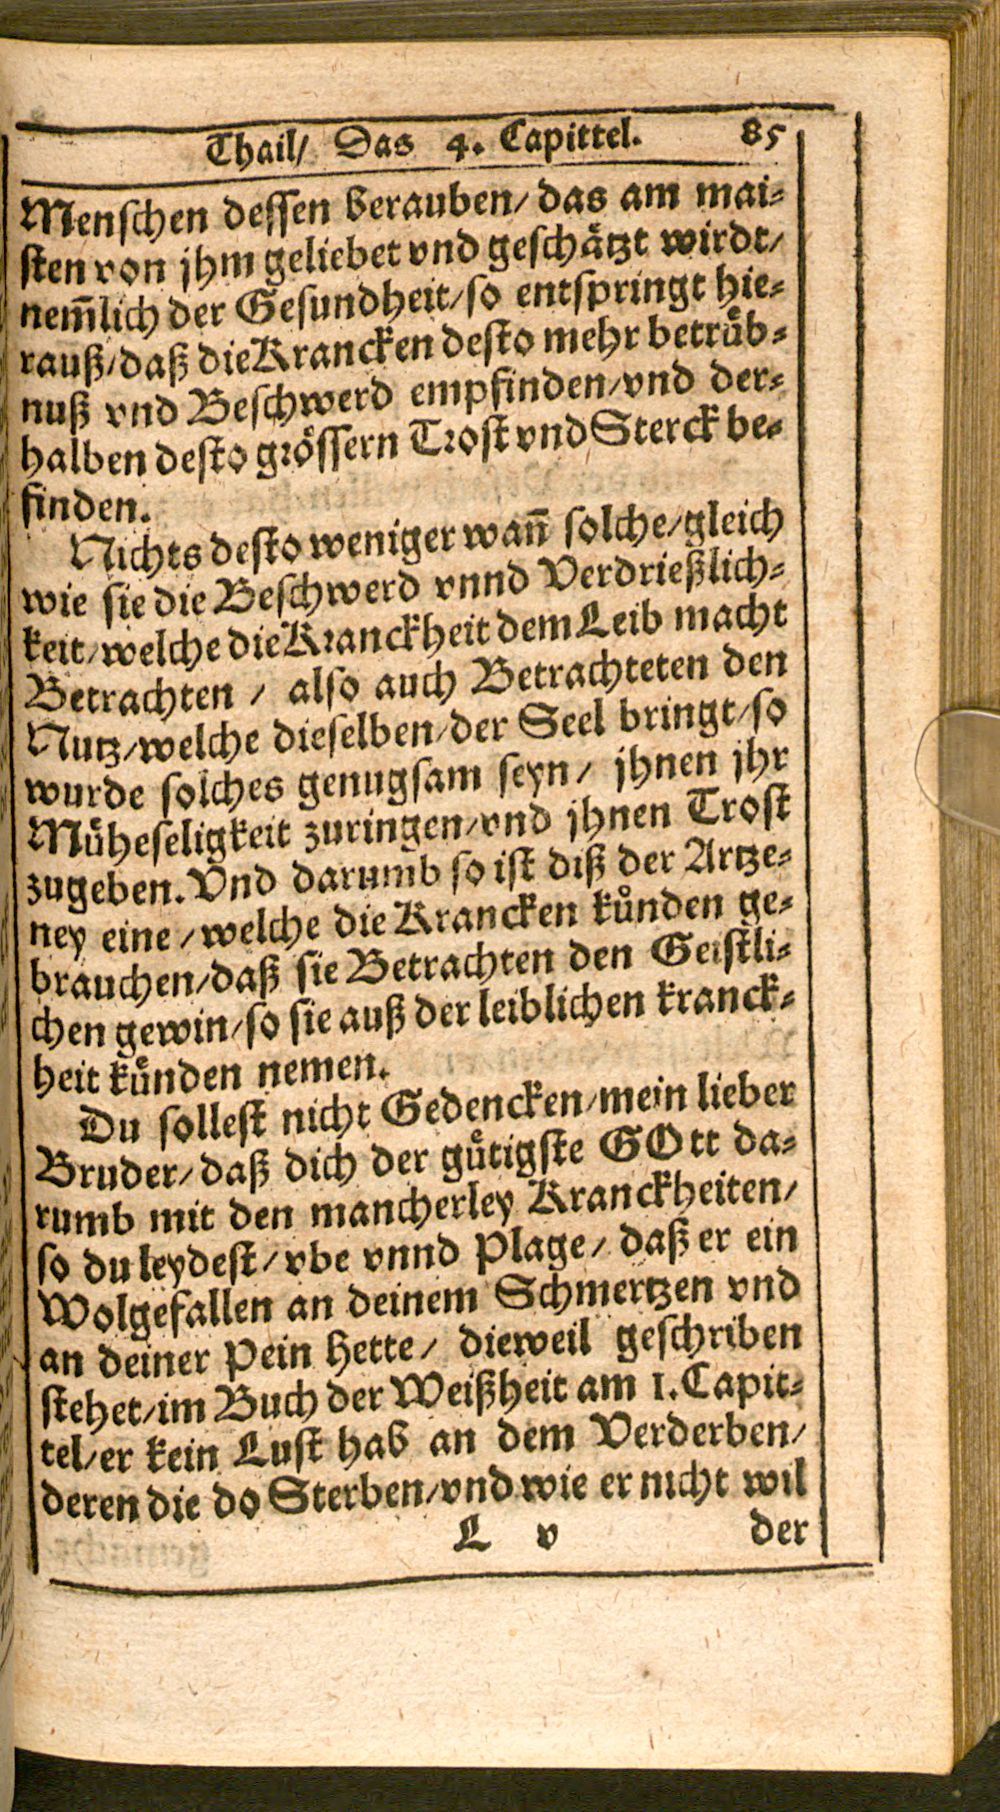 Thail/ Das 4. Capittel. 85
Menschen dessen berauben/ das am mai-
sten von jhm geliebet vnd geschätzt wirdt/
nem̄lich der Gesundheit/ so entspringt hie-
rauß/ daß die Krancken desto mehr betrüb-
nuß vnd Beschwerd empfinden/ vnd der-
halben desto grössern Trost vnd Sterck be-
finden.
Nichts desto weniger wan̄ solche/ gleich
wie sie die Beschwerd vnnd Verdrießlich-
keit/ welche die Kranckheit dem Leib macht
Betrachten / also auch Betrachteten den
Nutz/ welche dieselben/ der Seel bringt/ so
wurde solches genugsam seyn / jhnen jhr
Müheseligkeit zuringen/ vnd jhnen Trost
zugeben. Vnd darumb so ist diß der Artze-
ney eine / welche die Krancken künden ge-
brauchen/ daß sie Betrachten den Geistli-
chen gewin/ so sie auß der leiblichen kranck-
heit künden nemen.
Du sollest nicht Gedencken/ mein lieber
Bruder/ daß dich der gütigste GOtt da-
rumb mit den mancherley Kranckheiten/
so du leydest/ vbe vnnd Plage/ daß er ein
Wolgefallen an deinem Schmertzen vnd
an deiner Pein hette/ dieweil geschriben
stehet/ im Buch der Weißheit am 1. Capit-
tel/ er kein Lust hab an dem Verderben/
deren die do Sterben/ vnd wie er nicht wil
L v der